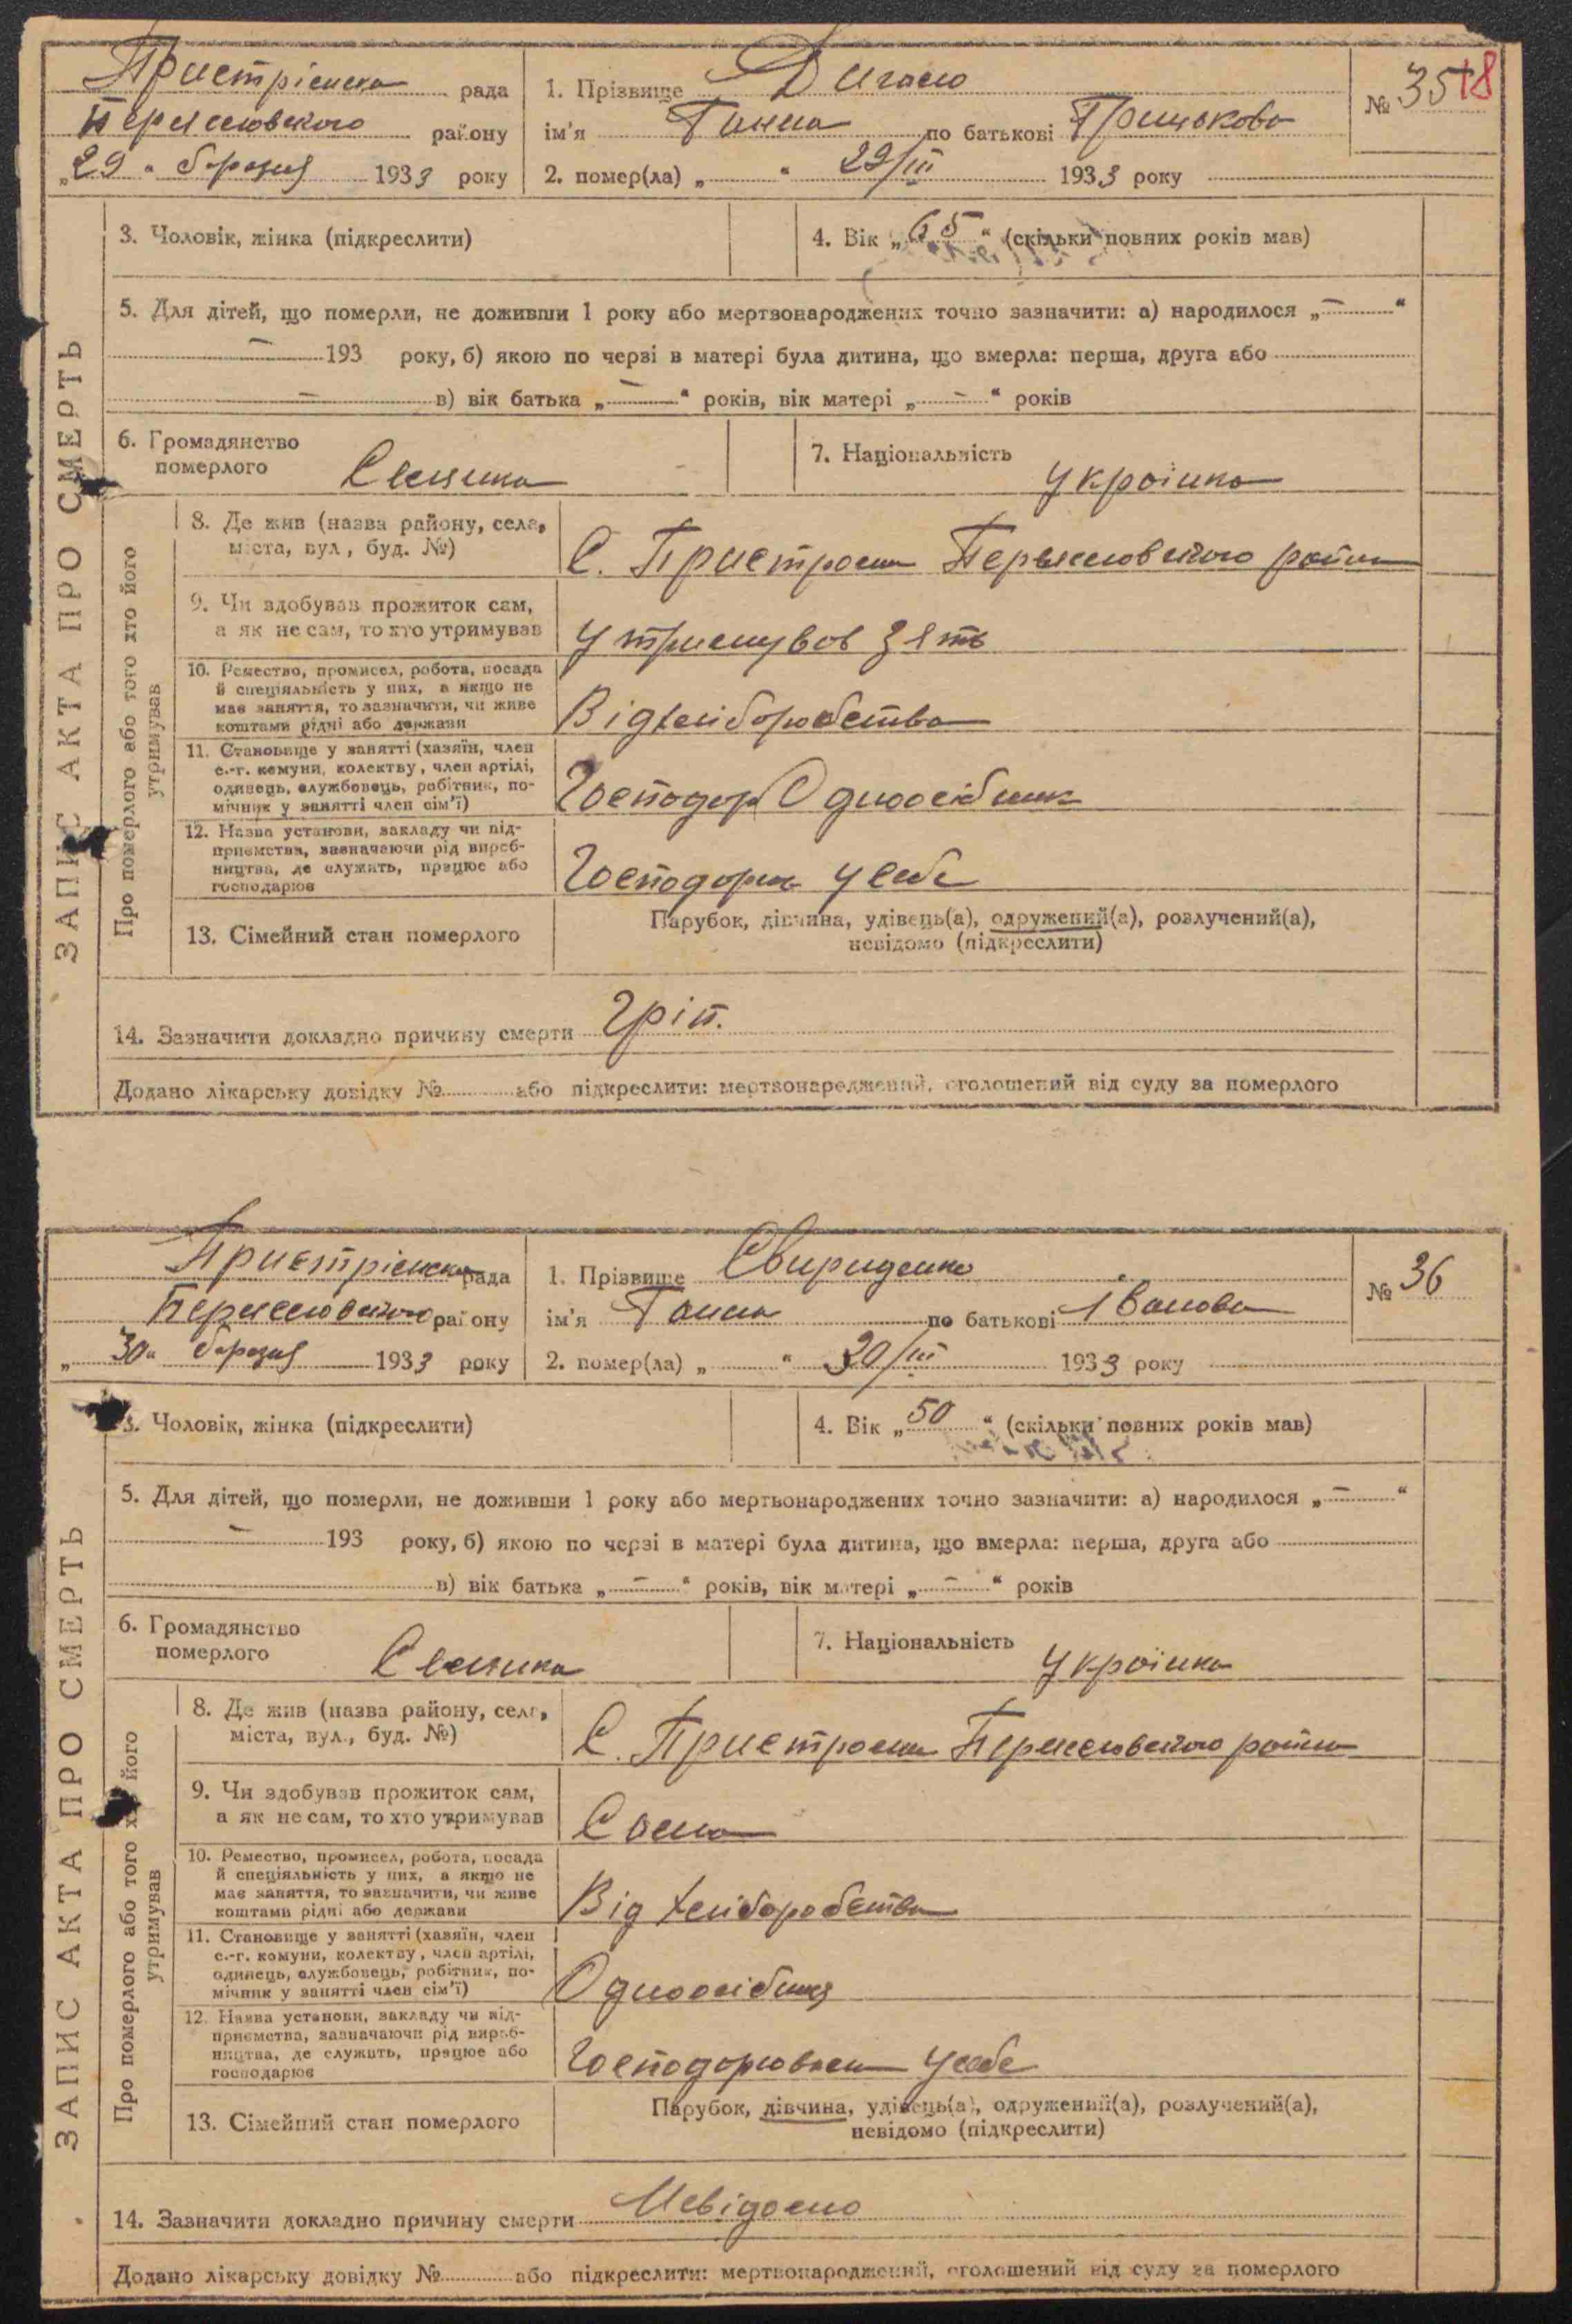 Пристрімська рада
Переяславського району
„29“ березня 1933 року
1. Прізвище
ім'я Ганна по батькові Грицькова
2. помер(ла) „ “ 29/III 1933 року
№ 35
18
ЗАПИС АКТА ПРО СМЕРТЬ
3. Чоловік, жінка (підкреслити)
4. Вік „65“ (скільки повних років мав)
5. Для дітей, що померли, не доживши 1 року або мертвонароджених точно зазначити: а) народилося „ — “
— 193 року, б) якою по черзі в матері була дитина, що вмерла: перша, друга або
— в) вік батька „ — “ років, вік матері „ — “ років
6. Громадянство
померлого
7. Національність Україінка
Про померлого або того хто його
утримував
8. Де жив (назва району, села,
міста, вул., буд. №)
С. Пристроми Переяславського району
9. Чи здобував прожиток сам,
а як не сам, то хто утримував
утримував зять
10. Ремество, промисел, робота, посада
й спеціяльність у них, а якщо не
має заняття, то зазначити, чи живе
коштами рідні або держави
Від хліборобства
11. Становище у занятті (хазяїн, член
с.-г. комуни, колективу, член артілі,
одинець, службовець, робітник, по-
мічник у занятті член сім'ї)
Господар Одноосібник
12. Назва установи, закладу чи під-
приємства, зазначаючи рід вироб-
ництва, де служить, працює або
господарює
у себе
13. Сімейний стан померлого
Парубок, дівчина, удівець(а), одружений(а), розлучений(а),
невідомо (підкреслити)
14. Зазначити докладно причину смерти Гріп.
Додано лікарську довідку № або підкреслити: мертвонароджений, оголошений від суду за померлого
Пристрімська рада
Переяславського району
„30“ березня 1933 року
1. Прізвище Свириденко
ім'я Ганна по батькові Іванова
2. помер(ла) „ “ 30/III 1933 року
№ 36
ЗАПИС АКТА ПРО СМЕРТЬ
3. Чоловік, жінка (підкреслити)
4. Вік „50“ (скільки повних років мав)
5. Для дітей, що померли, не доживши 1 року або мертвонароджених точно зазначити: а) народилося „ — “
— 193 року, б) якою по черзі в матері була дитина, що вмерла: перша, друга або
в) вік батька „ — “ років, вік матері „ — “ років
6. Громадянство
померлого
7. Національність Україінка
Про померлого або того хто його
утримував
8. Де жив (назва району, села,
міста, вул., буд. №)
С. Пристроми Переяславського району
9. Чи здобував прожиток сам,
а як не сам, то хто утримував
Сама
10. Ремество, промисел, робота, посада
й спеціяльність у них, а якщо не
має заняття, то зазначити, чи живе
коштами рідні або держави
Від хліборобства
11. Становище у занятті (хазяїн, член
с.-г. комуни, колективу, член артілі,
одинець, службовець, робітник, по-
мічник у занятті член сім'ї)
Одноосібниця
12. Назва установи, закладу чи під-
приємства, зазначаючи рід вироб-
ництва, де служить, працює або
господарює
Господорювала у себе
13. Сімейний стан померлого
Парубок, дівчина, удівець(а), одружений(а), розлучений(а),
невідомо (підкреслити)
14. Зазначити докладно причину смерти Невідомо
Додано лікарську довідку № або підкреслити: мертвонароджений, оголошений від суду за померлого